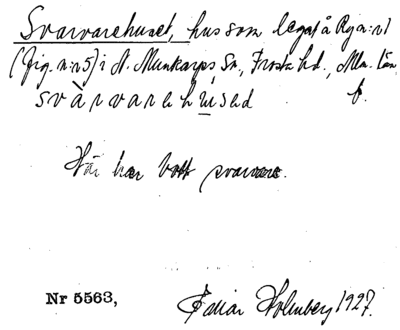 Svarvarehuset, hus som legat å Rga n:r 1
(Fig. n:r 5) i N. Munkarps Sn, Frosta hd., Mlm. län
svàrvarehúsed f.
Här har bott svarvare.
Nr 5563, Edvar Holmberg 1927.